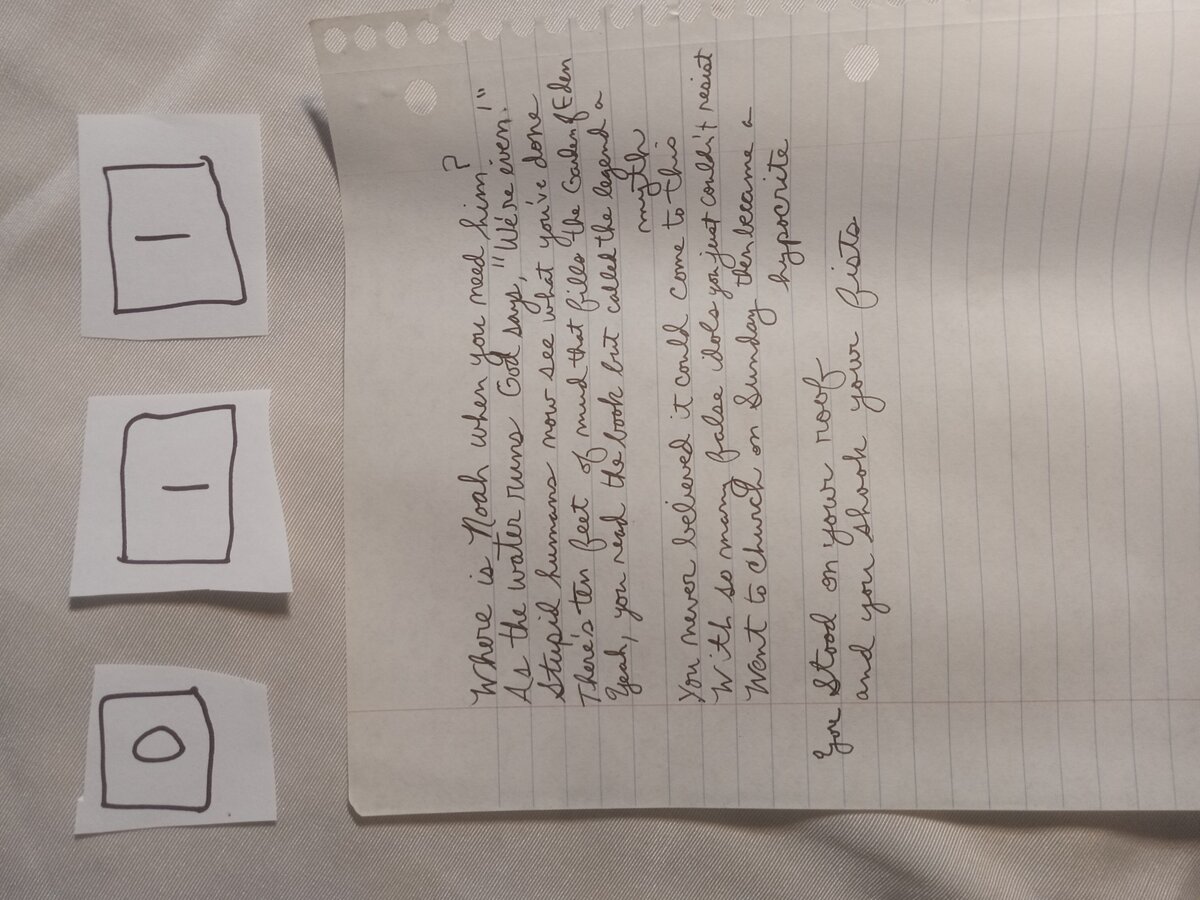 0 1 1
Where is Noah when you need him?
As the water runs God says, "We're even!"
Stupid humans now see what you've done
There's ten feet of mud that fills the Garden of Eden
Yeah, you read the book but called the legend a
myth
You never believed it could come to this
With so many false idols you just couldn't resist
Went to church on Sunday then became a
hypocrite
You stood on your roof
and you shook your fists